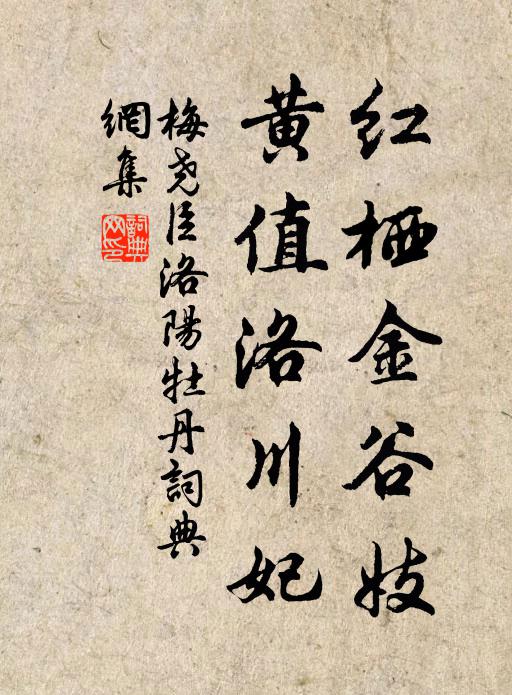 红栖金谷妓
黄值洛川妃
梅尧臣洛陽牡丹詞典
網集
詞典网印